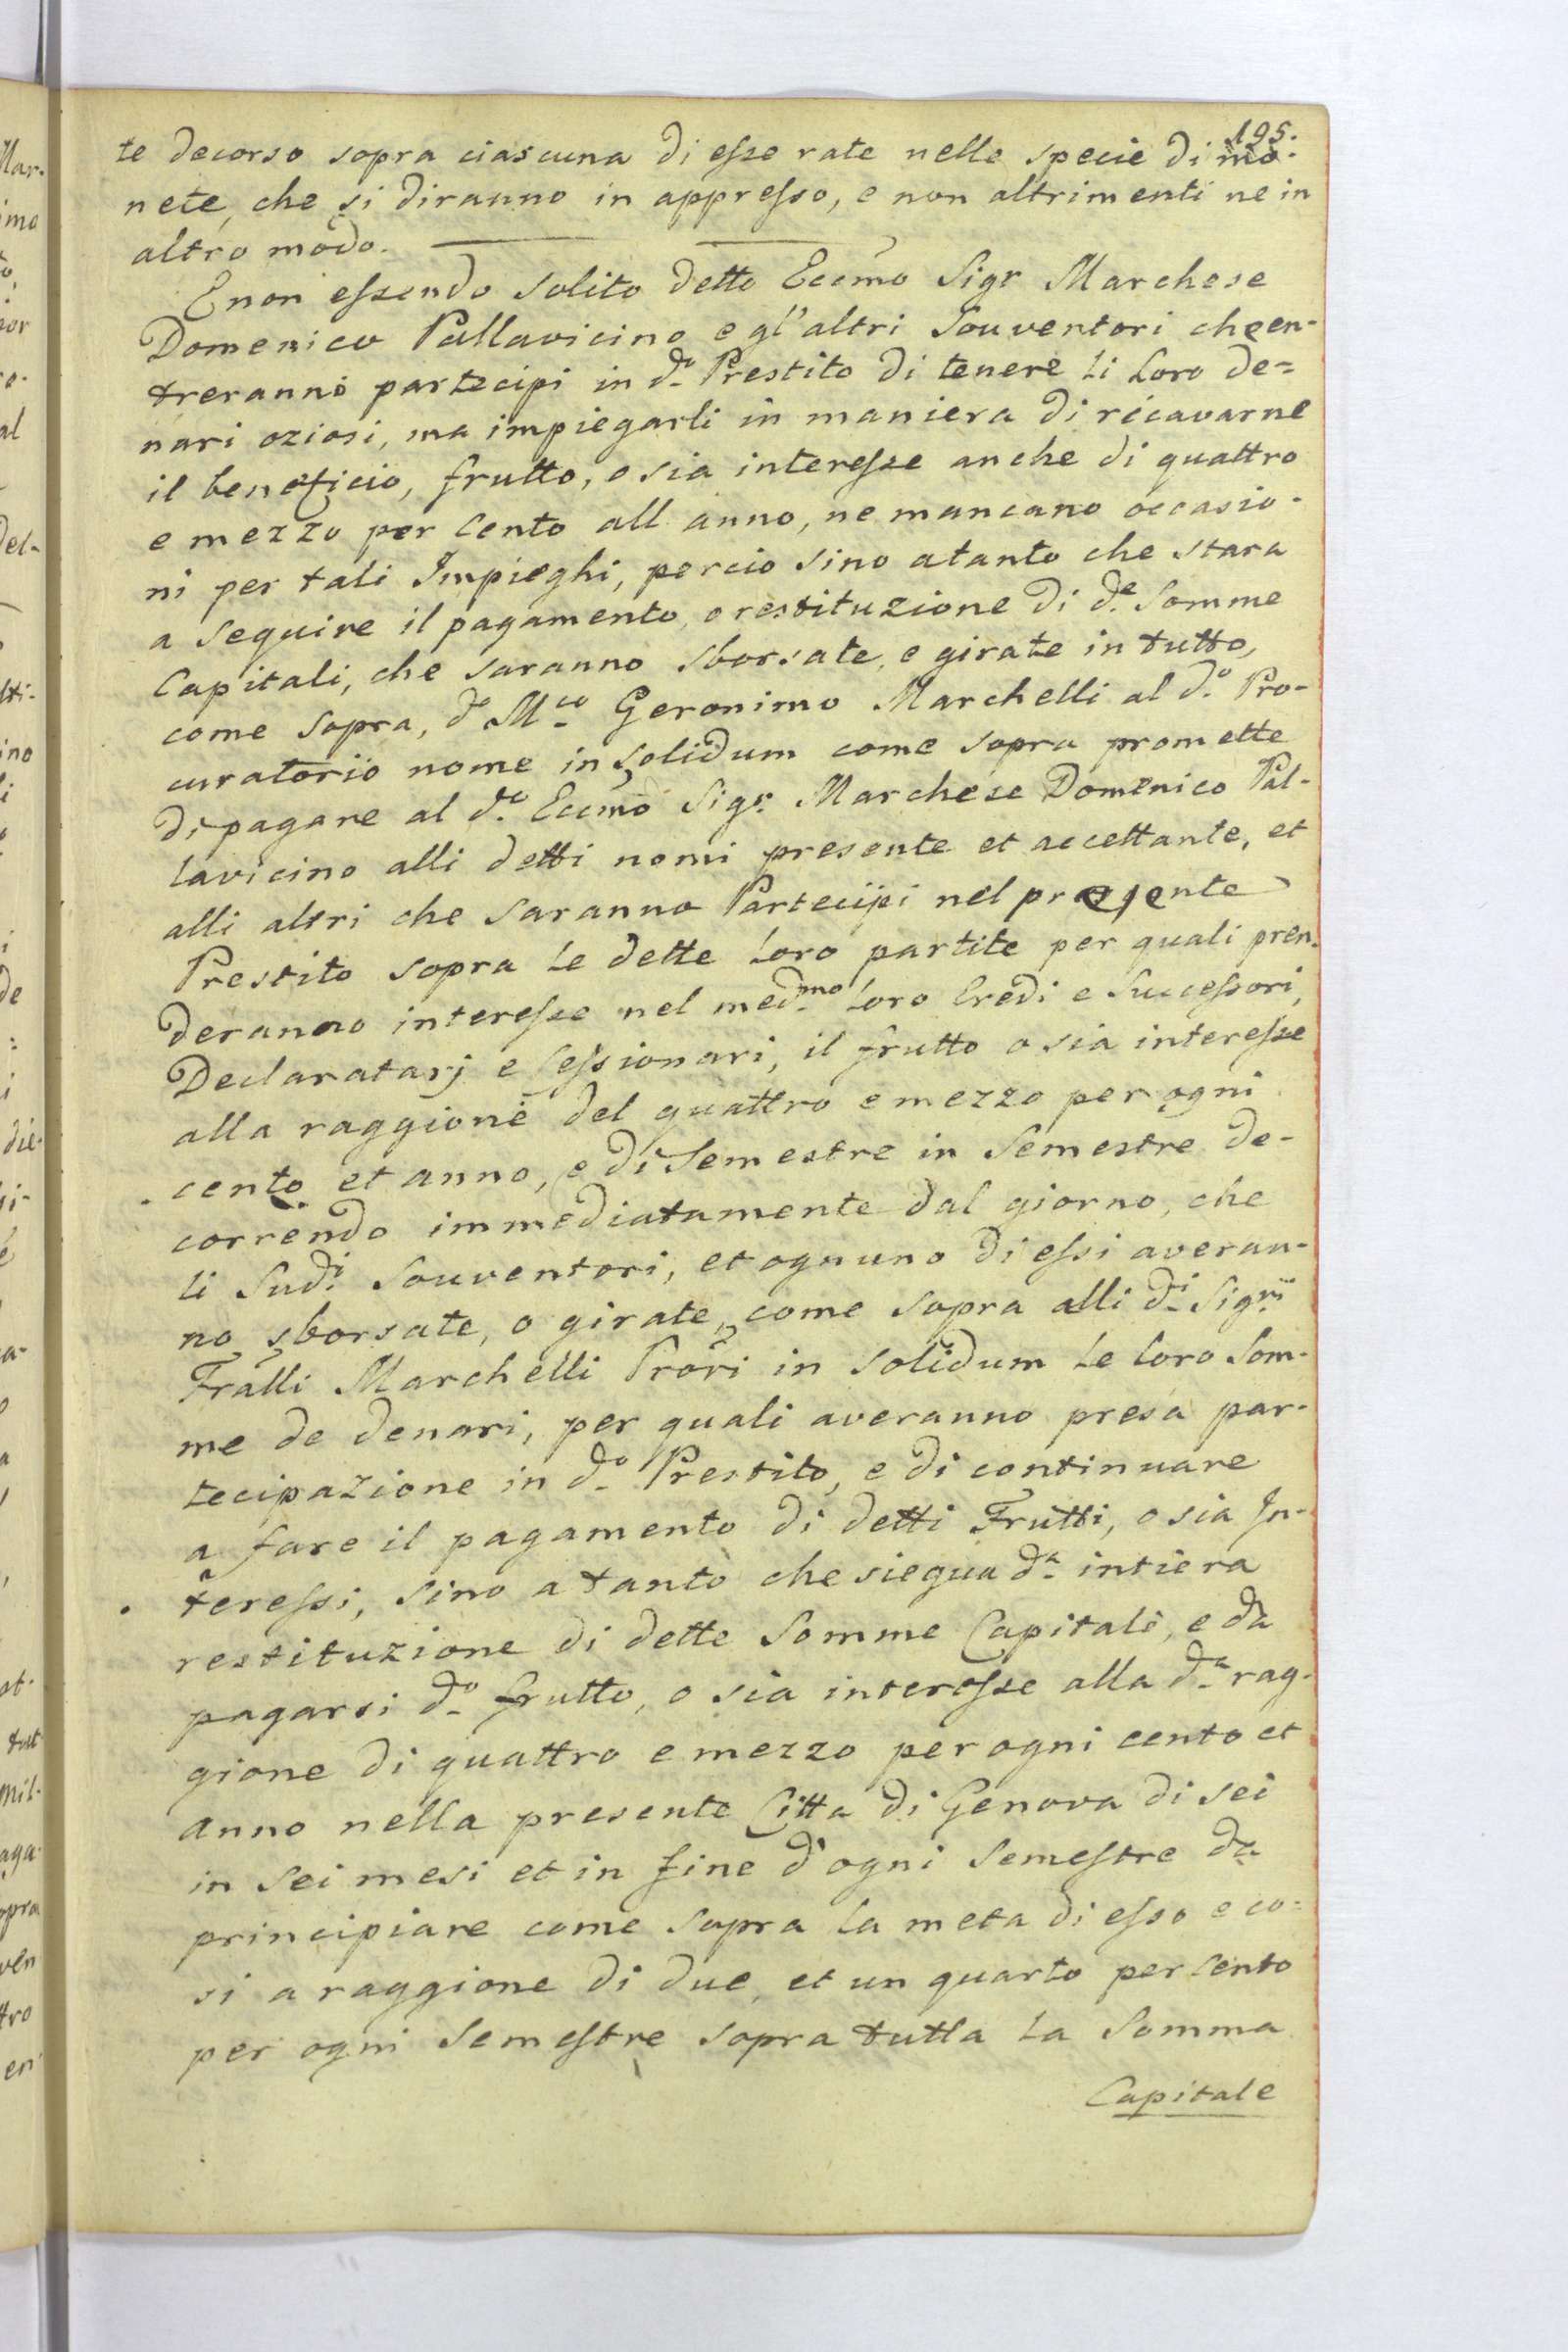 195.
te decorso sopra ciascuna di esse rate nelle specie di mo-
nete, che si diranno in appresso, e non altrimenti ne in
altro modo.
E non essendo solito detto Eccmo Sigr Marchese
Domenico Pallavicino e gl'altri Souventori che en-
treranno partecipi in do Prestito di tenere li loro de=
nari oziosi, ma impiegarli in maniera di ricavarne
il beneficio, frutto, o sia interesse anche di quattro
e mezzo per cento all anno, ne mancano occasio-
ni per tali Impieghi, percio sino atanto che stara
a seguire il pagamento, o restituzione di de Somme
Capitali, che saranno sborsate, e girate in tutto,
come sopra, do Mco Geronimo Marchelli al do Pro-
curatorio nome in solidum come sopra promette
di pagare al do Eccmo Sigr Marchese Domenico Pal-
lavicino alli detti nomi presente et accettante, et
alli altri che saranno Partecipi nel presente
Prestito sopra le dette loro partite per quali pren-
deranno interesse nel medmo loro Eredi e Successori,
Declaratarj e Cessionari, il frutto o sia interesse
alla raggione del quattro e mezzo per ogni
cento et anno, e di Semestre in Semestre de-
correndo immediatamente dal giorno, che
li Sudi Souventori, et ognuno di essi averan-
no sborsate, o girate, come sopra alli di Sigri
Fralli Marchelli Prori in solidum le loro Som-
me de denari, per quali averanno presa par-
tecipazione in do Prestito, e di continuare
a fare il pagamento di detti Frutti, o sia In-
teressi, sino a tanto che siegua da intiera
restituzione di dette Somme Capitali, e da
pagarsi do frutto, o sia interesse alla da rag-
gione di quattro e mezzo per ogni cento et
anno nella presente Citta di Genova di sei
in sei mesi et in fine d'ogni semestre da
principiare come sopra la meta di esso e co-
si a raggione di due, et un quarto per cento
per ogni Semestre sopra tutta la Somma
Capitale